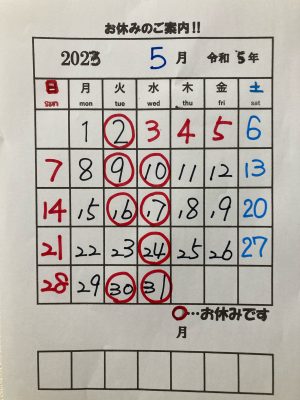 お休みのご案内!!
2023 5月 令和 5年
日 月 火 水 木 金 土
sun mon tue wed thu fri sat
1 2 3 4 5 6
7 8 9 10 11 12 13
14 15 16 17 18 19 20
21 22 23 24 25 26 27
28 29 30 31
○…お休みです
月